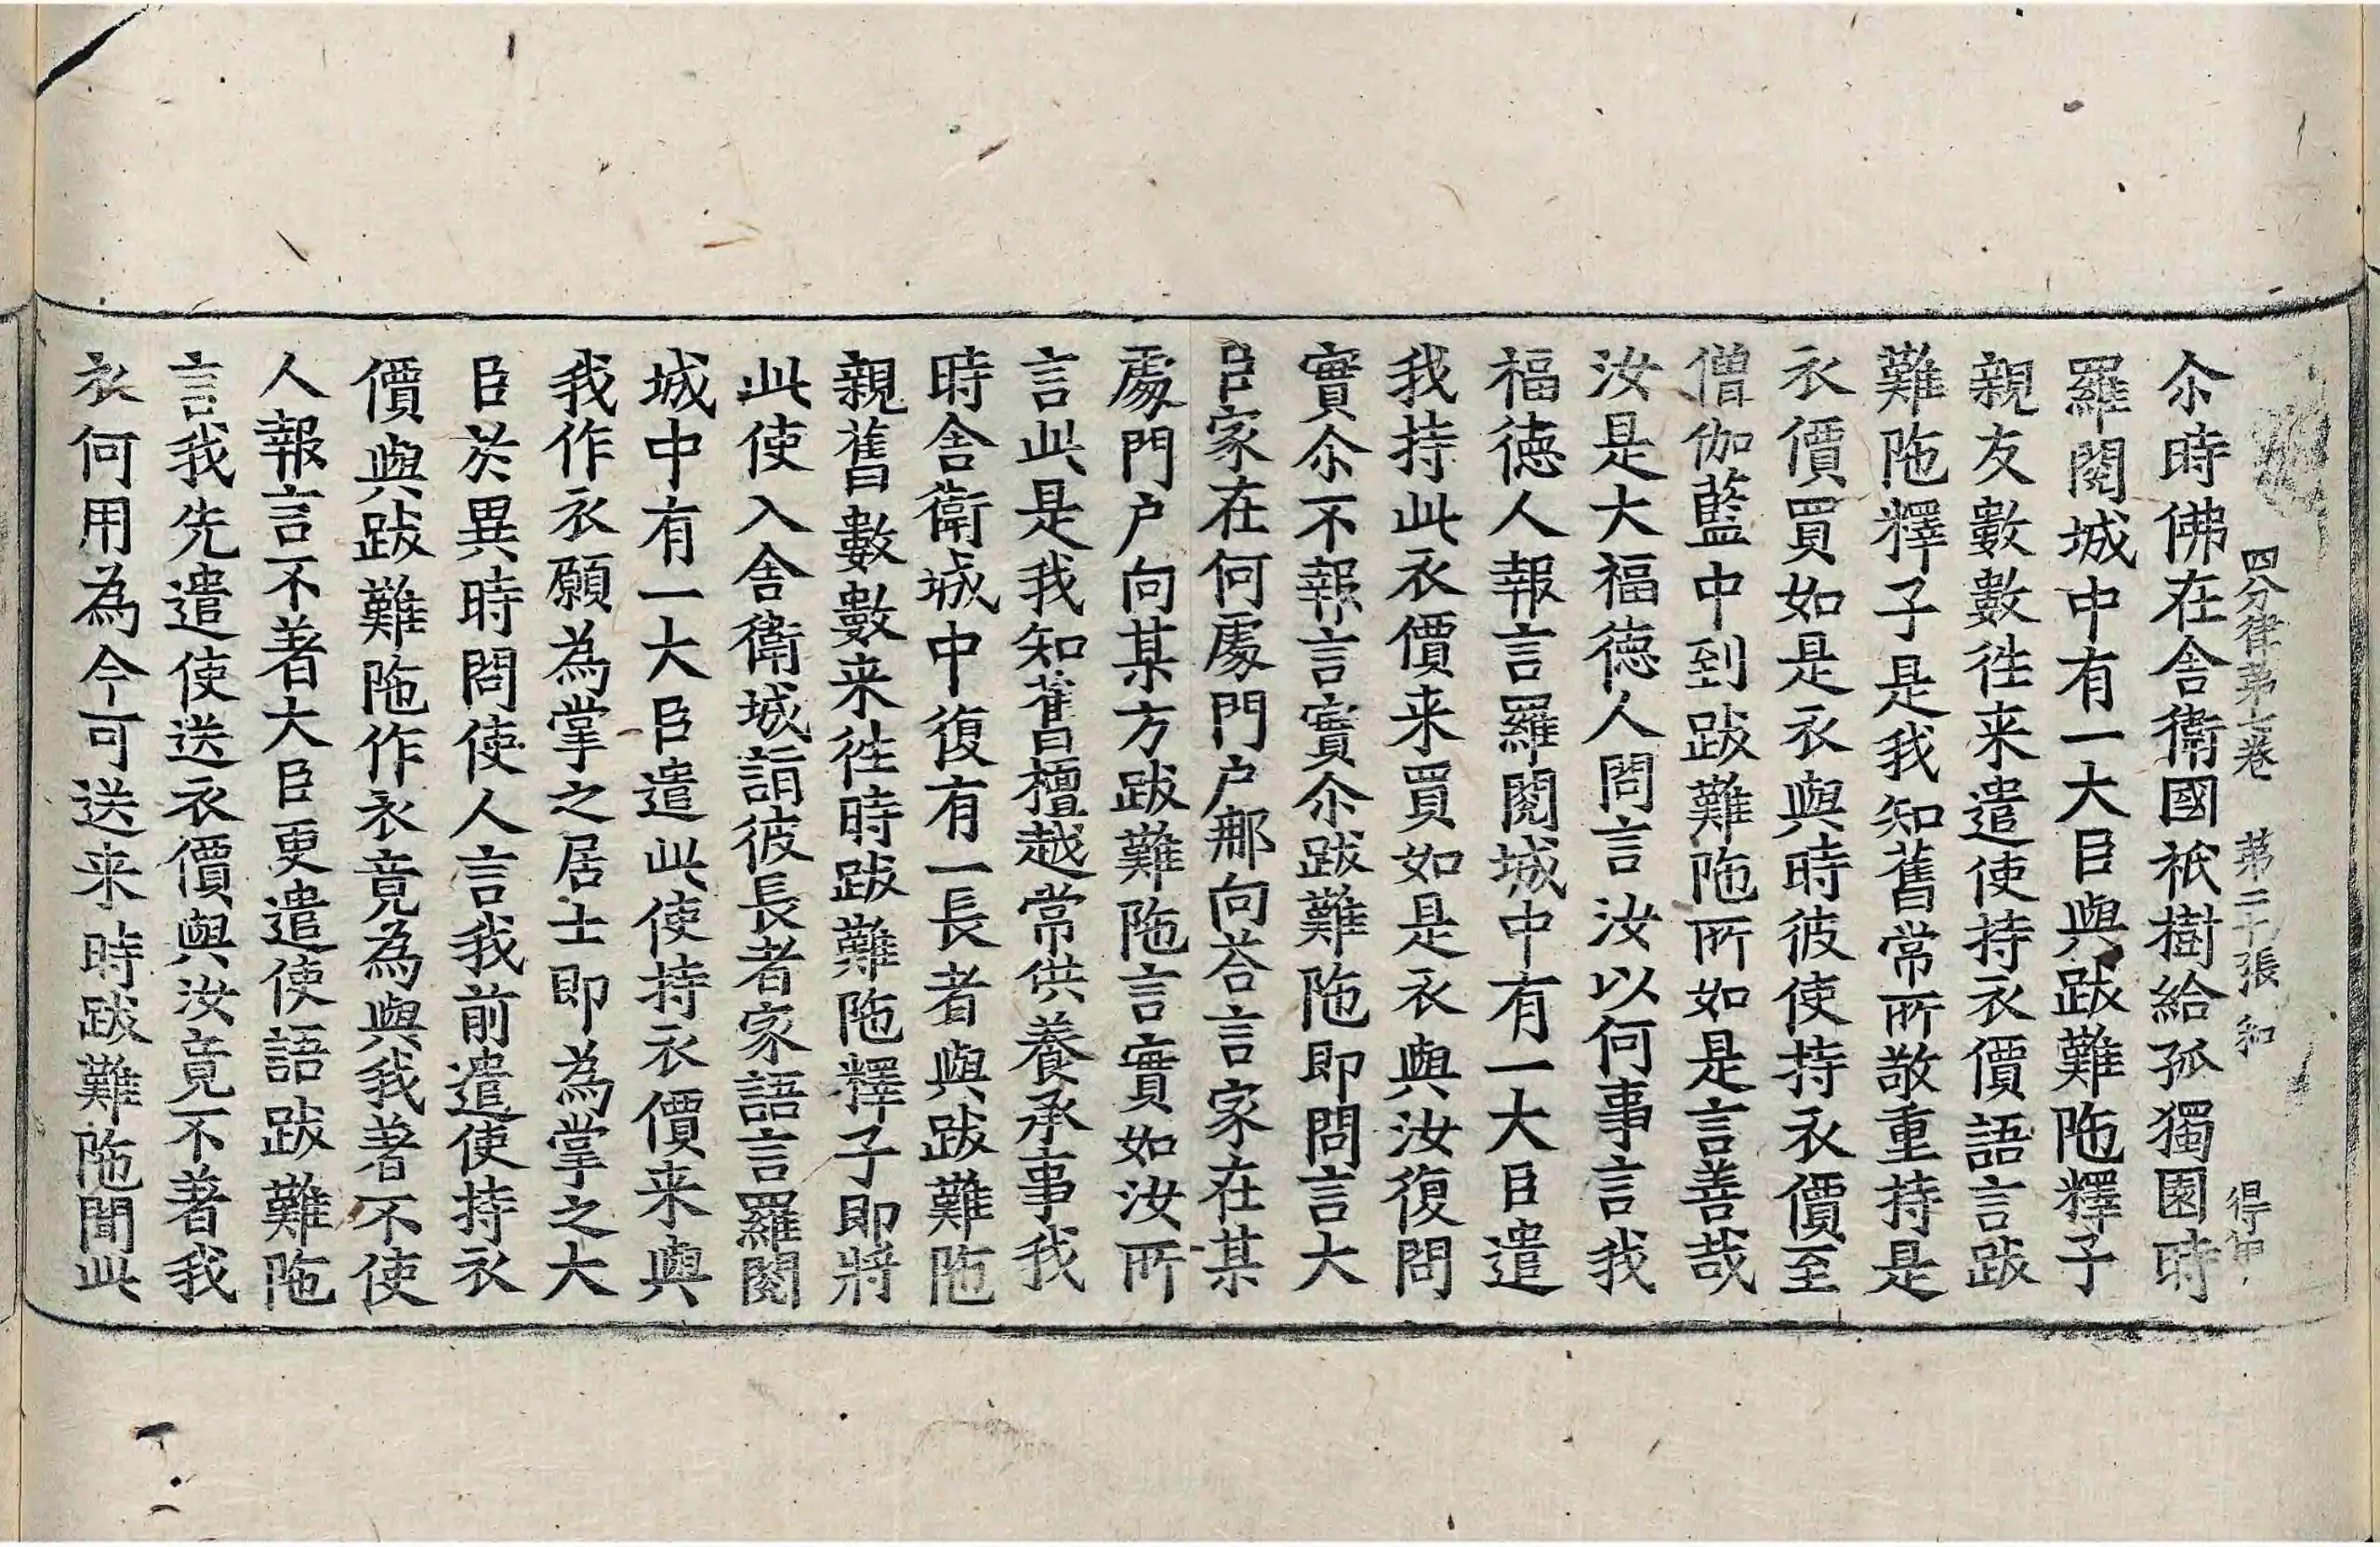 四分律第七卷 第二十張 和 得甲
尒時佛在舍衛國祇樹給孤獨園時
羅閱城中有一大臣與跋難陁釋子
親友數數往来遣使持衣價語言跋
難陁釋子是我知舊常所敬重持是
衣價買如是衣與時彼使持衣價至
僧伽藍中到跋難陁所如是言善哉
汝是大福德人問言汝以何事言我
福德人報言羅閱城中有一大臣遣
我持此衣價来買如是衣與汝復問
實尒不報言實尒跋難陁即問言大
臣家在何處門户那向荅言家在某
處門户向某方跋難陁言實如汝所
言此是我知舊檀越常供養承事我
時舍衛城中復有一長者與跋難陁
親舊數數来往時跋難陁釋子即將
此使入舍衛城詣彼長者家語言羅閱
城中有一大臣遣此使持衣價来與
我作衣願為掌之居士即為掌之大
臣於異時問使人言我前遣使持衣
價與跋難陁作衣竟為與我著不使
人報言不著大臣更遣使語跋難陁
言我先遣使送衣價與汝竟不著我
衣何用為今可送来時跋難陁聞此